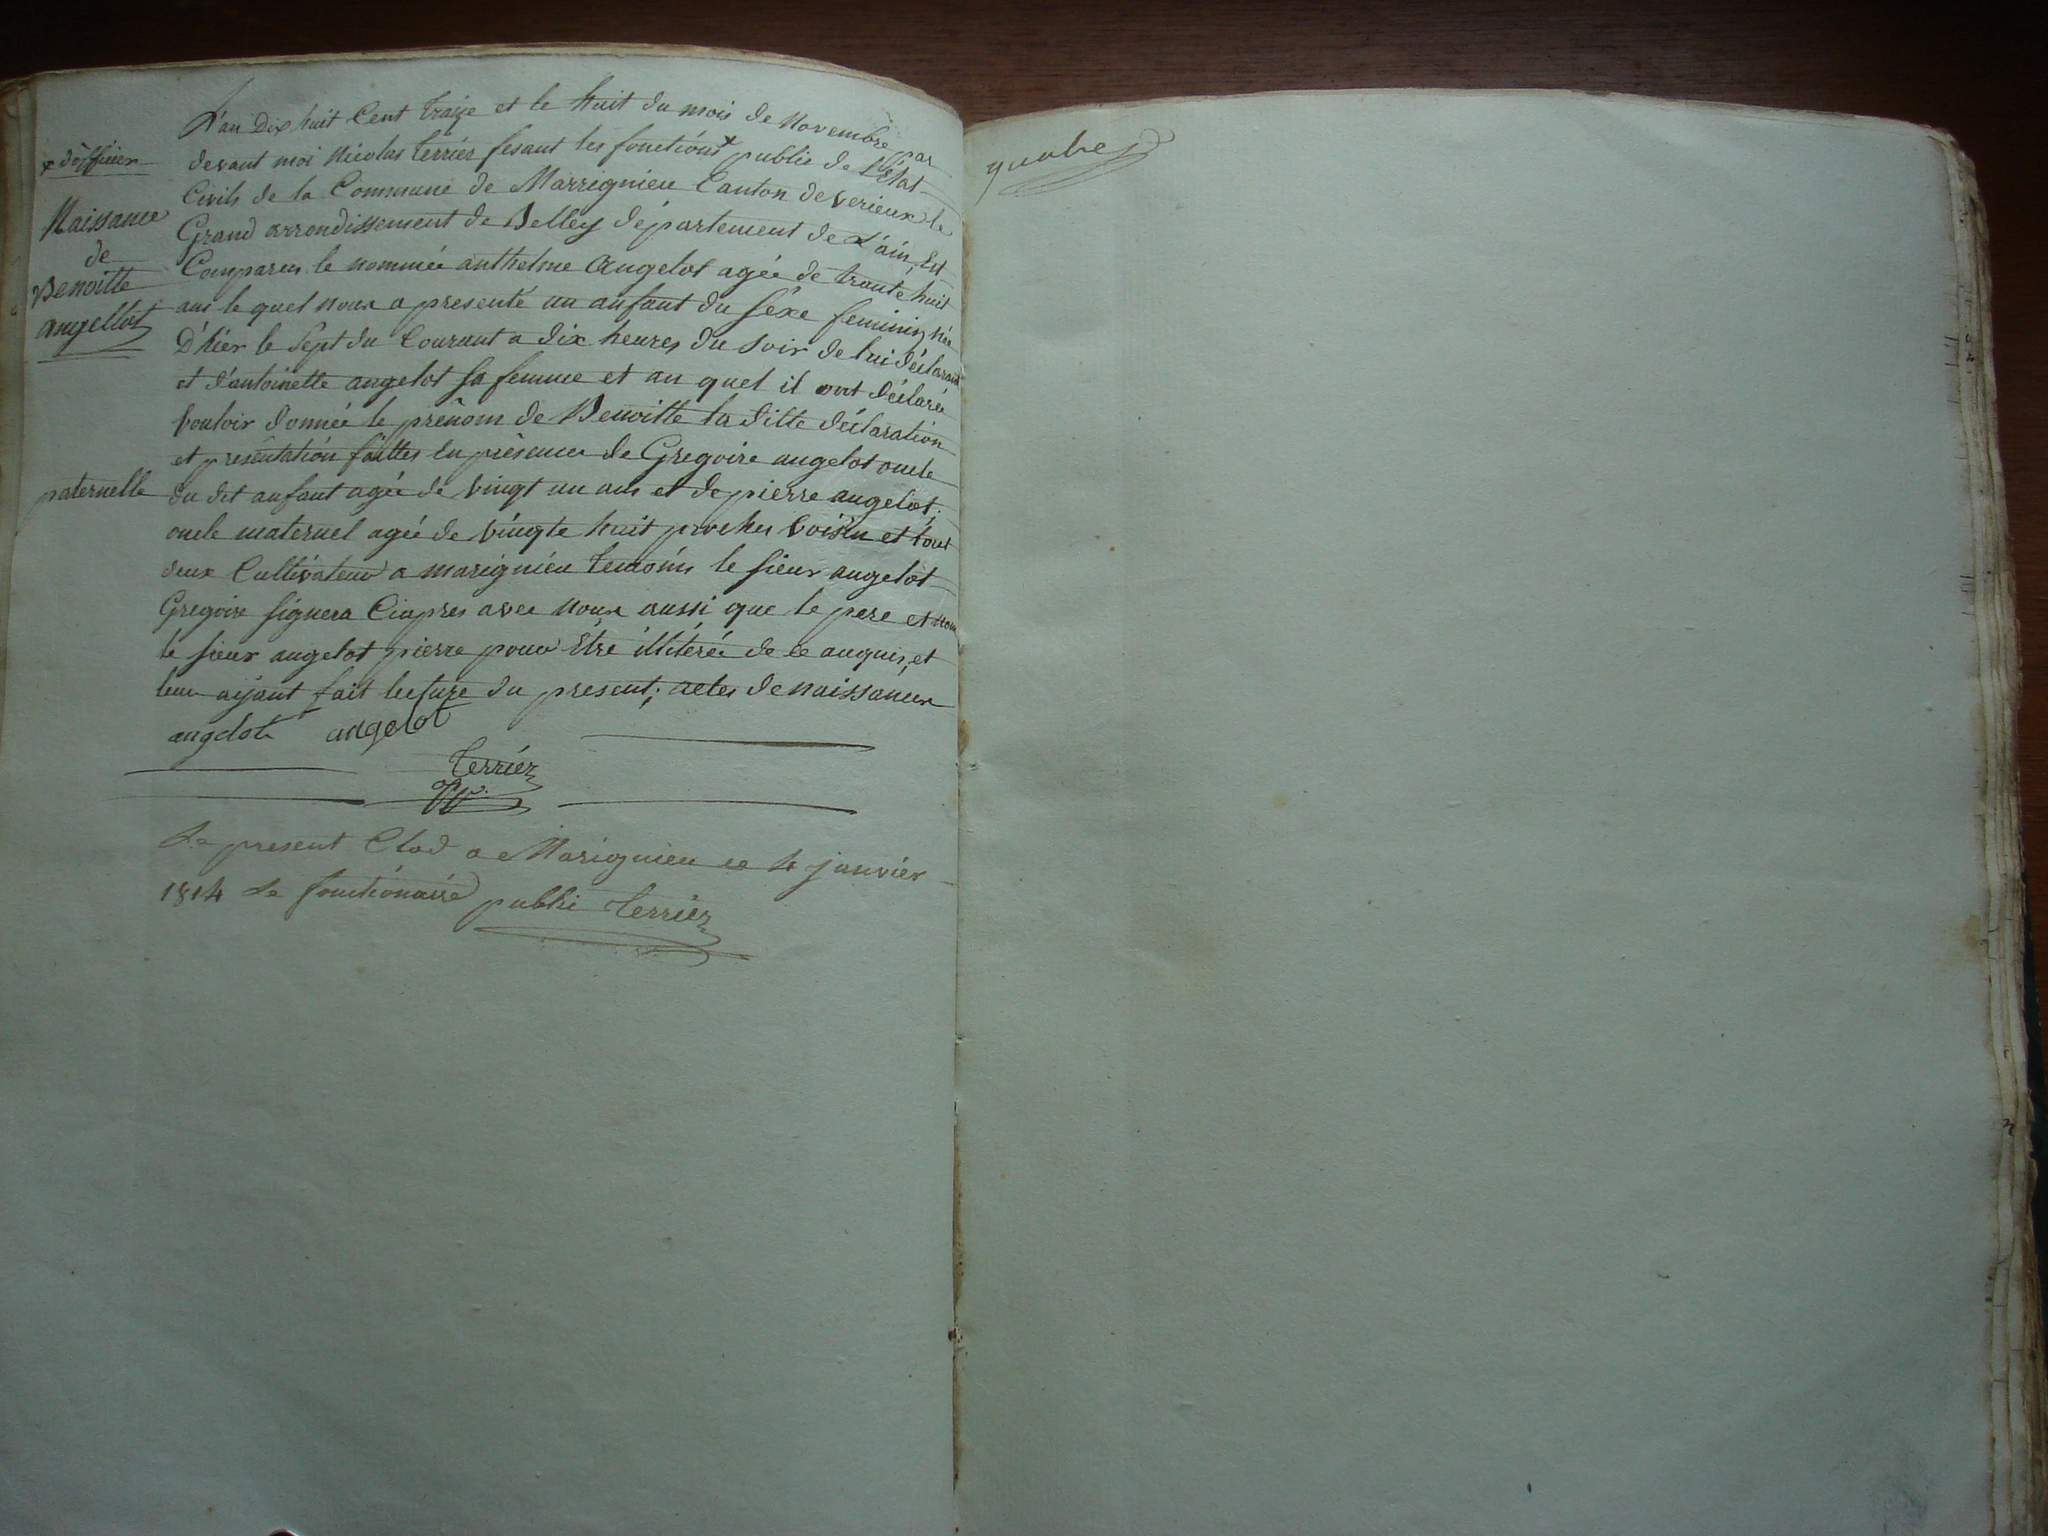 L'an Dix huit Cent Traize et le huit du mois de Novembre par
x d'officier
devant moi Nicolas Terrier fesant les fonctions x public de l'état
Civils de la Commune de Marrignieu Canton de verieux le
Naissance
de
Benoitte
angellot
Grand arrondissement de Belley département de L'ain, Est
Comparus le nommée anthelme Angelot agée de trante huit
ans le quel nous a presenté un anfant du séxe feminin née
D'hier le Sept du Courant a dix heures du soir de lui déclarant
et d'antoinette angelot sa femme et au quel il ont déclarée
vouloir donnée le prénom de Benoitte la ditte déclaration
et présentation faittes en présence de Gregoire angelot oncle
paternelle
du dit anfant agée de vingt un ans et de pierre angelot,
oncle maternel agée de vingte huit proches voisin et tous
deux Cultivateur a marignieu temoins le sieur angelot
Gregoire signera Ciapres avec nous aussi que le pere et non
le sieur angelot pierre pour Etre illitérée de ce anquis, et
leur aijant fait lecture du present, actes de naissances
angelot angelot
Terrier
Le present Clod a Marignieu ce 4 janvier
1814 Le fonctionaire public Terrier